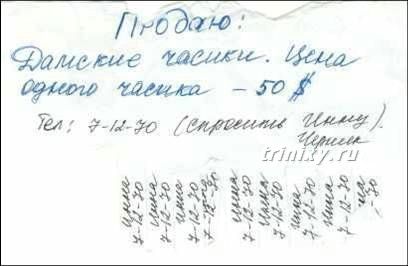 Продаю:
Дамские часики. Цена
одного часика – 50 $
Тел: 7-12-70 (спросить Инну).
trinixy.ru
Инна
7-12-70
Инна
7-12-70
Инна
7-12-70
7-12-70
Инна
7-12-70
Инна
7-12-70
Инна
7-12-70
Инна
7-12-70
на
-70